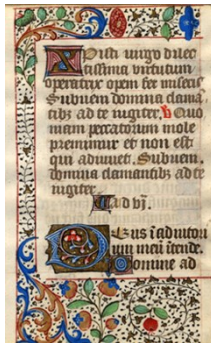 Xpisti uirgo dilec
tissima virtutum
operatrix opem fer miseris
Subueni domina clamā
tibz ad te iugiter. v Quo
niam peccatorum mole
premimur et non est
qui adiuuet. Subueni.
domina clamantibz ad te
iugiter
Ad vj̄.
Deus ī adiutori
um meū ītende.
Domine ad